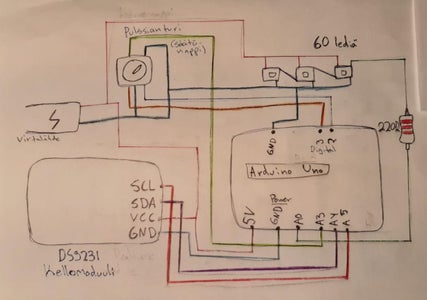 Pulssianturi
(säätö-
nuppi)
60 lediä
Virtalähde
220Ω
GND
3
2
Digital
Arduino Uno
Power
5V
GND
A0
A3
A4
A5
SCL
SDA
VCC
GND
DS3231
kellomoduuli